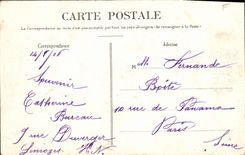 CARTE POSTALE
La Correspondance au recto n'est pas acceptée par tous les pays étrangers (Se renseigner à la Poste)
Correspondance
Adresse
14/8/06
Souvenir
Catherine
Bureau
7 rue Duverger
Limoges H.V.
Mlle Fernande
Boîte
10 rue de Panama
Paris
Seine